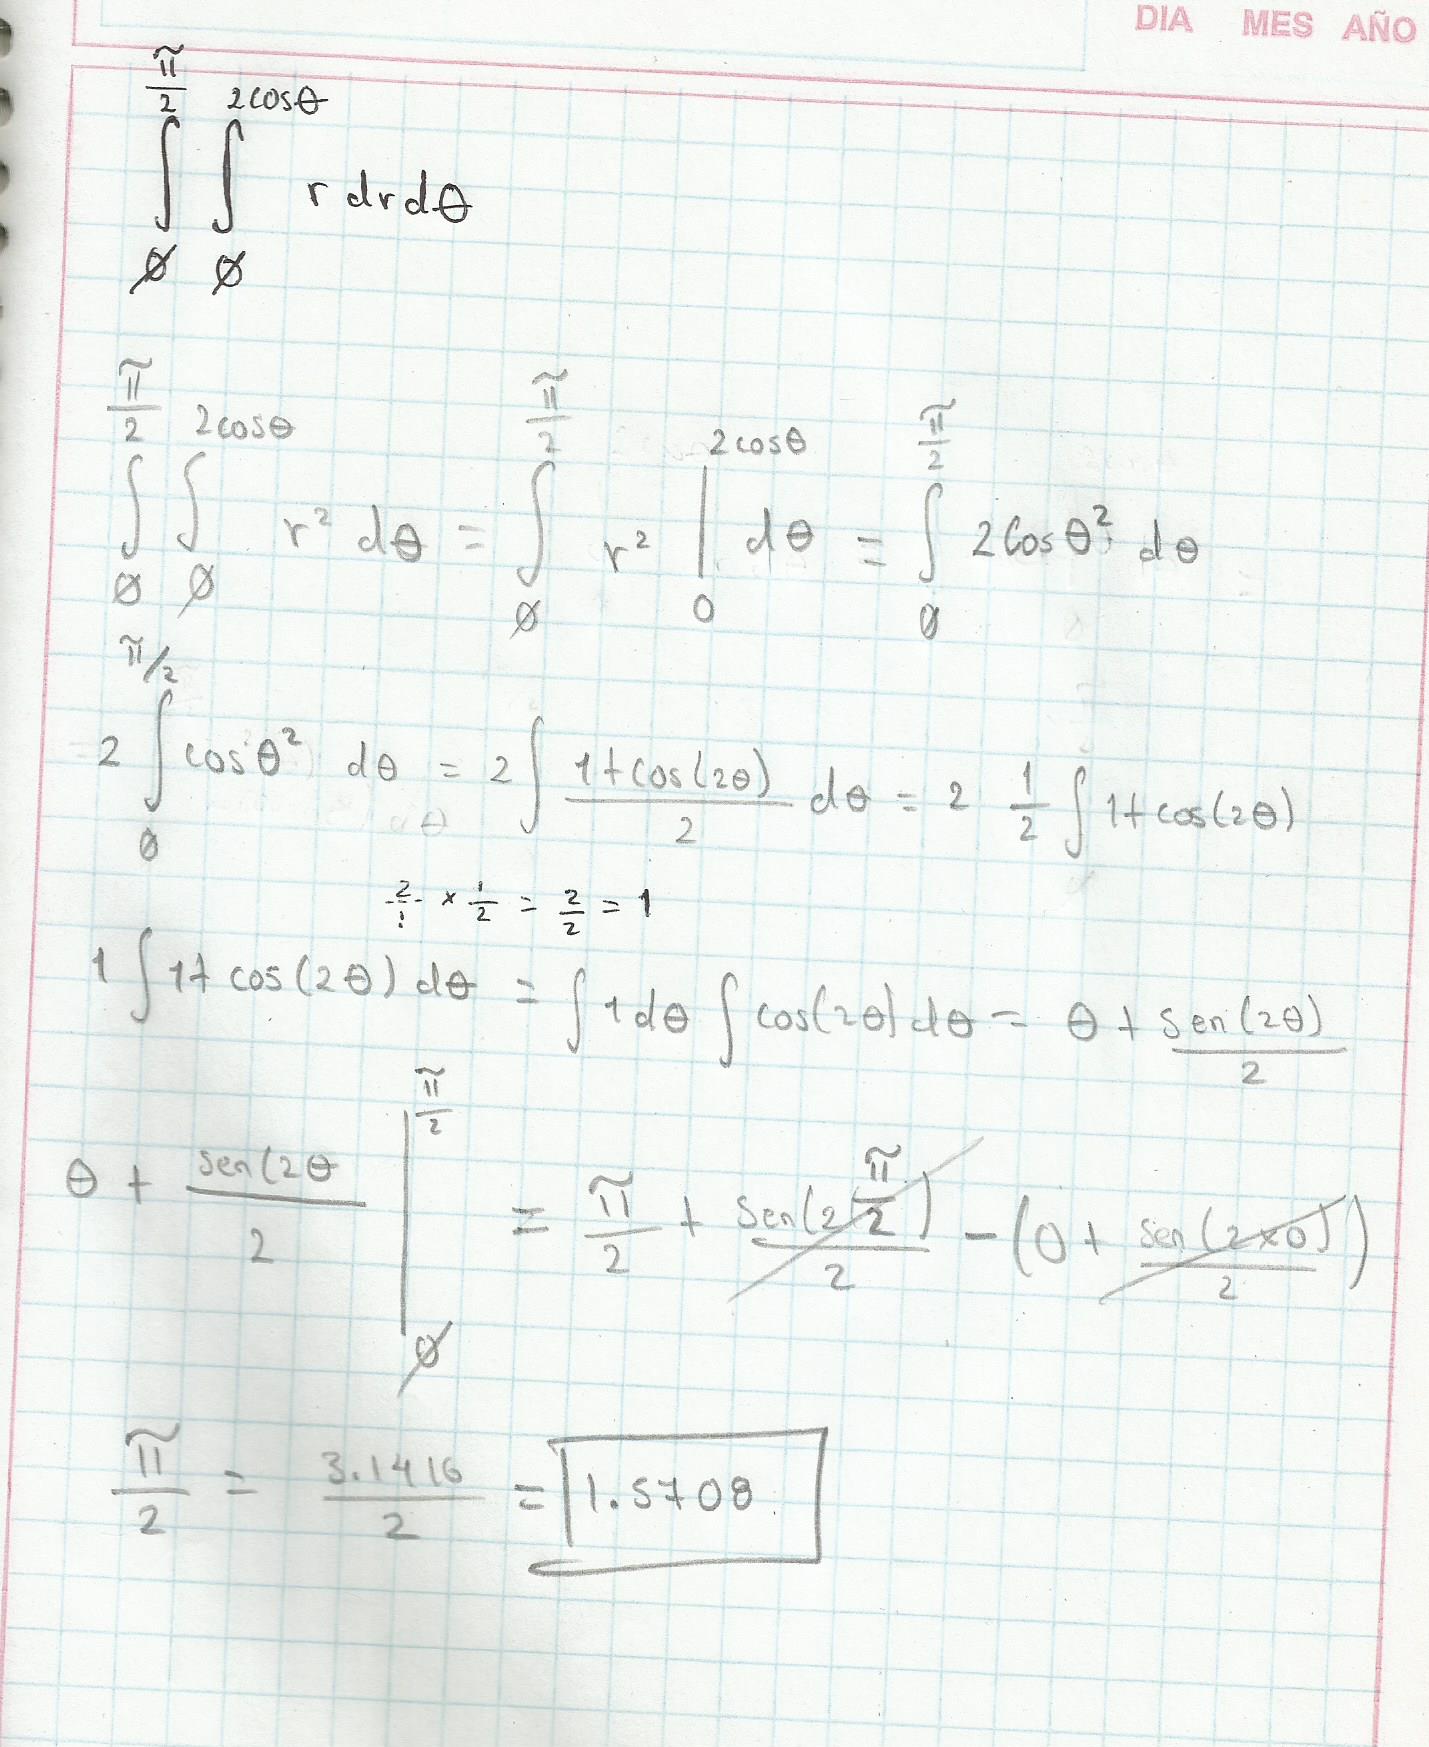 DIA MES AÑO
∫_0^{π/2} ∫_0^{2cosθ} r dr dθ
∫_0^{π/2} ∫_0^{2cosθ} r² dθ = ∫_0^{π/2} r² |_0^{2cosθ} dθ = ∫_0^{π/2} 2Cosθ² dθ
2 ∫_0^{π/2} cosθ² dθ = 2 ∫ (1+cos(2θ))/2 dθ = 2 1/2 ∫ 1+cos(2θ)
2/1 × 1/2 = 2/2 = 1
1 ∫ 1+cos(2θ) dθ = ∫ 1dθ ∫ cos(2θ) dθ = θ + sen(2θ)/2
θ + sen(2θ/2 |_0^{π/2} = π/2 + sen(2 π/2)/2 - (0 + sen(2×0)/2)
π/2 = 3.1416/2 = 1.5708